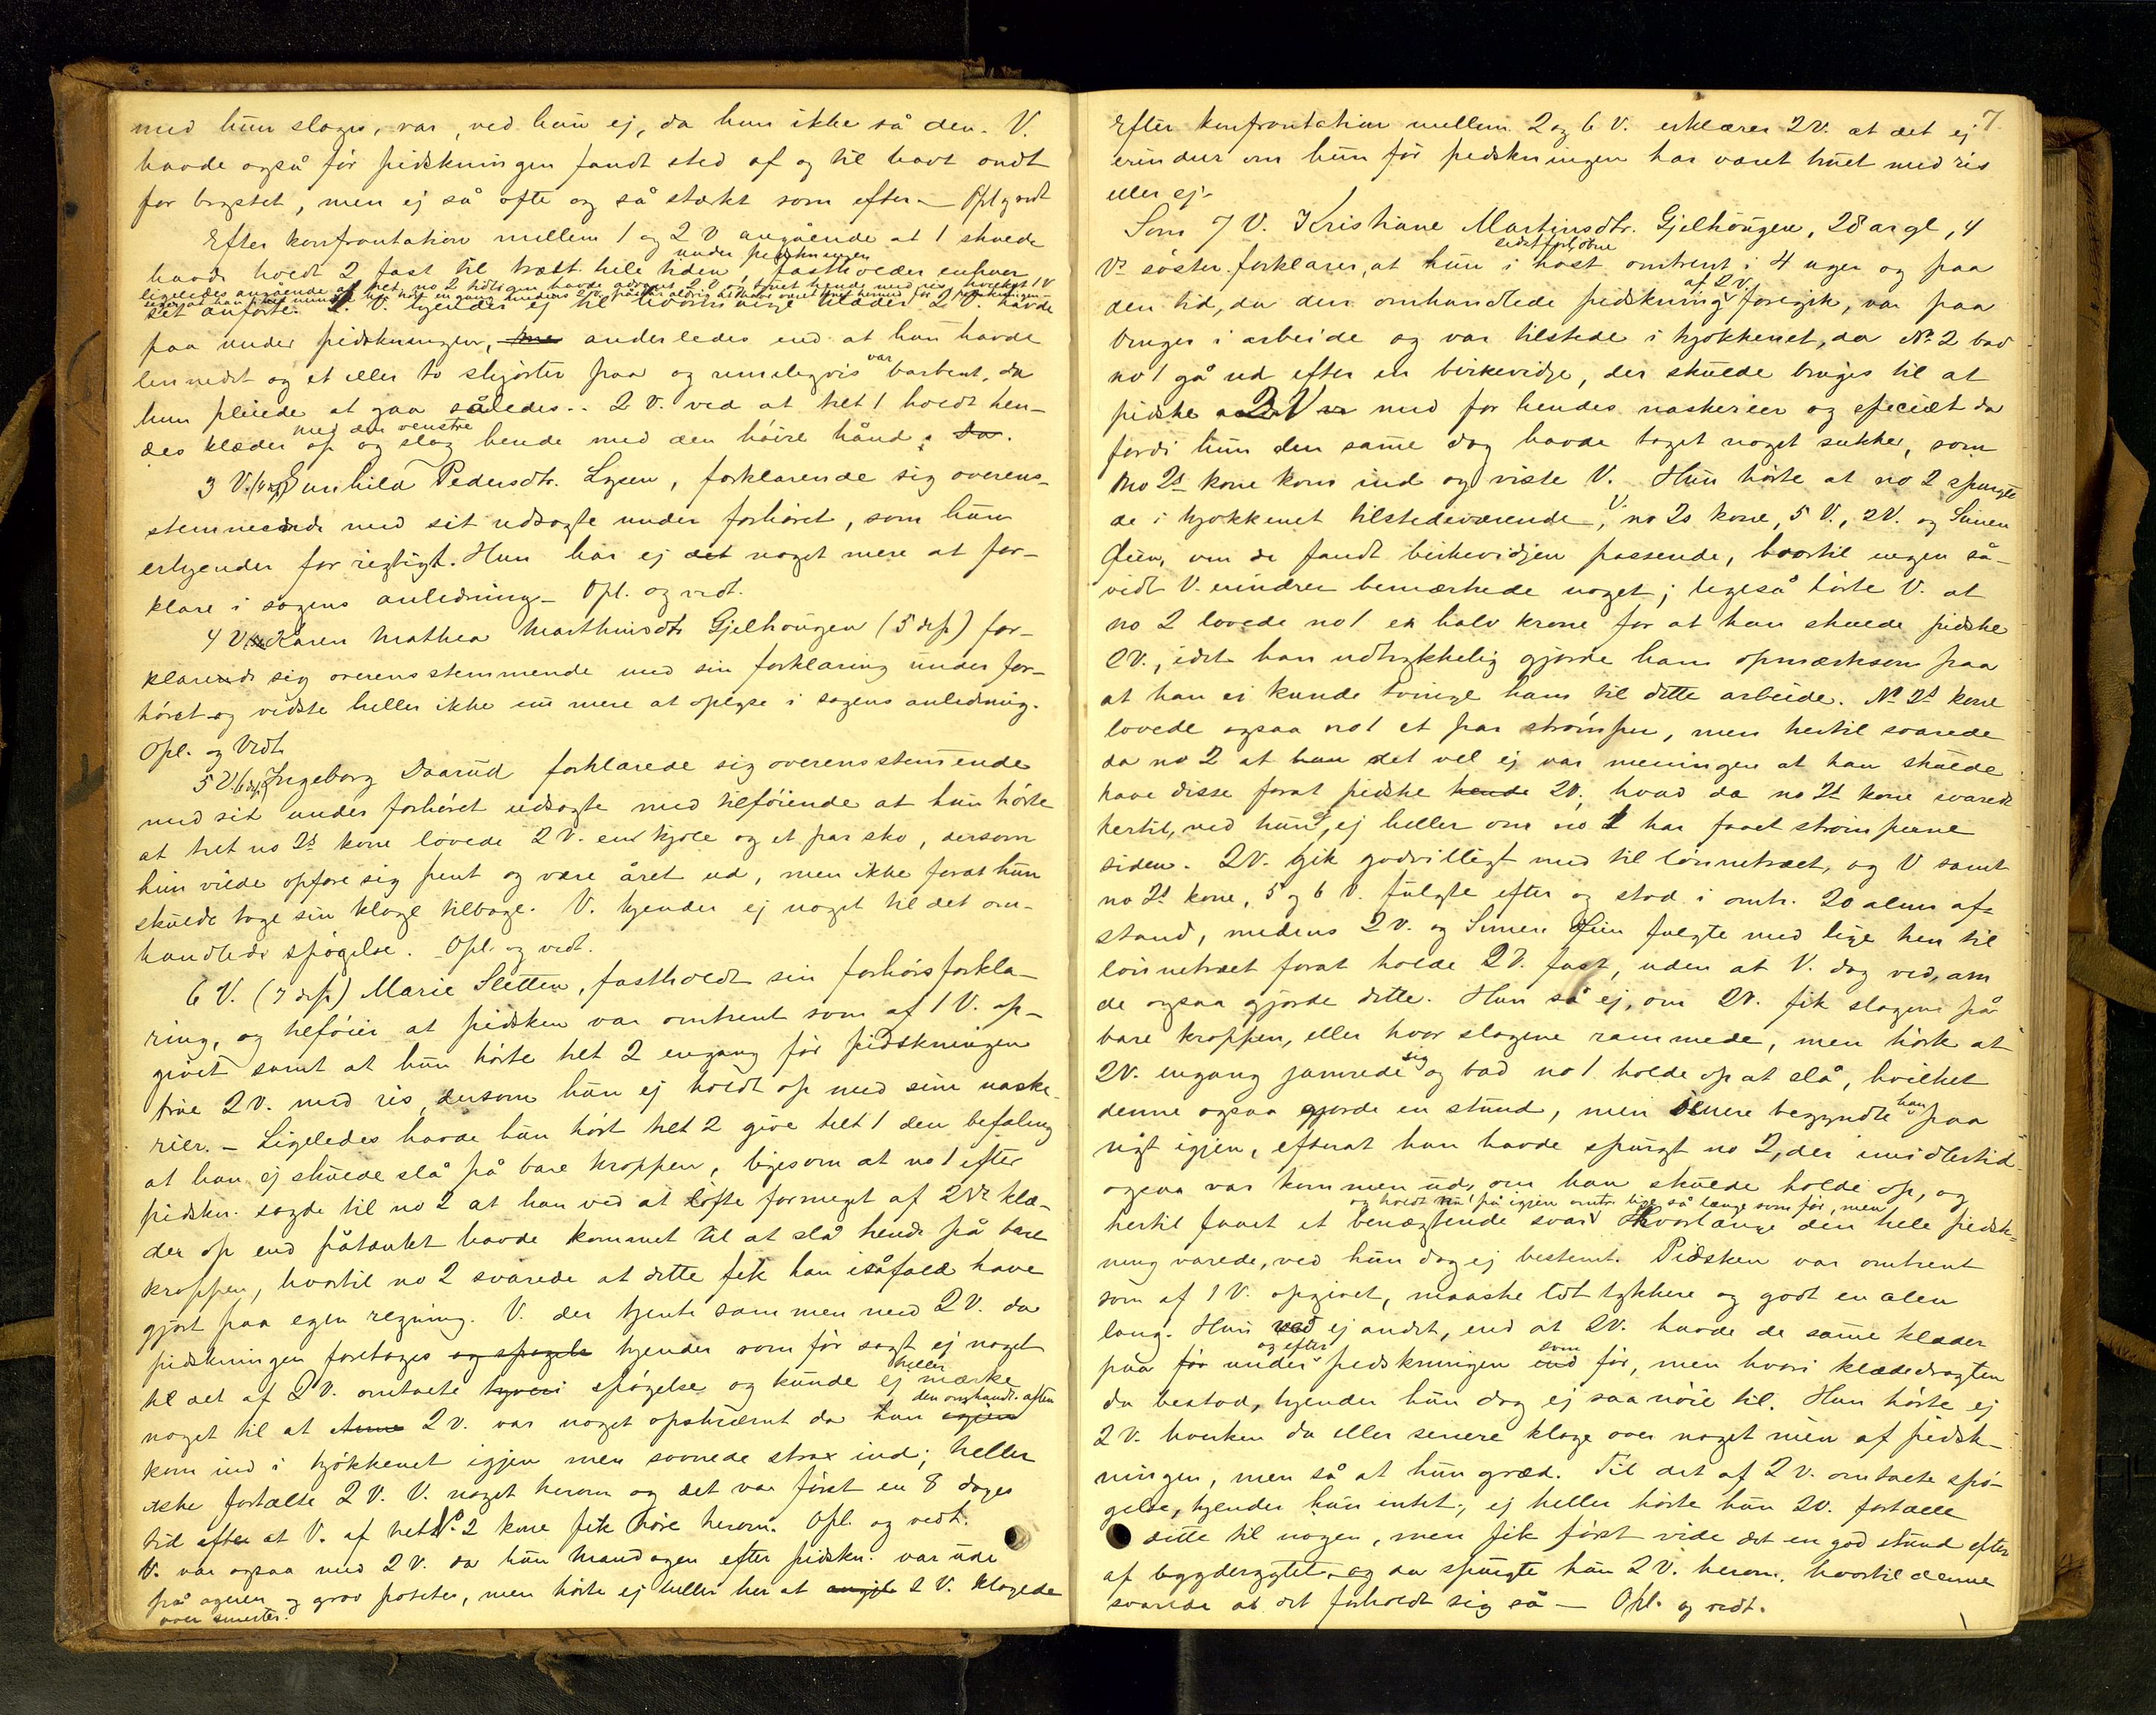 med hun sloges, var, ved hun ej, da hun ikke så den. V.
havde også før pidskningen fandt sted af og til havt ondt
for brystet, men ej så ofte og så stærkt som efter. — Opl og vedt
Efter konfrontation mellem 1 og 2 V angående at 1 skulde
under pidskningen
havde holdt 2 fast til træet hele tiden, fastholder enhver
ligeledes angående at tilt no 2 havde 2 V og hende med ris, hvilket 1 V
sit anførte. 2. V. kjender ej til hvormange klæder 2 V. havde
paa under pidskningen, anderledes end at hun havde
var
linnedet og et eller to skjørter paa og rimeligvis barbent, da
hun pleiede at gaa således. 2 V. ved at tilt 1 holdt hen-
med den venstre
des klæder op og slog hende med den høire hånd. da.
3 V. (4 dp) Gunhild Pedersdtr. Lysen, forklarende sig overens-
stemmende med sit udsagte under forhøret, som hun
erkjender for rigtigt. Hun har ej det noget mere at for-
klare i sagens anledning — Opl. og vedt.
4 V Karen Mathea Marthinsdtr Gjelhougen (5 dp) for-
klarende sig overensstemmende med sin forklaring under for-
høret og vidste heller ikke nu mere at oplyse i sagens anledning.
Opl. og Vedt.
5 V. (6 dp) Ingeborg Daarud forklarede sig overensstemende
med sit under forhøret udsagte med tilføiende at hun hørte
at tilt no 2s kone lovede 2 V. en kjole og et par sko, dersom
hun vilde opføre sig pent og være året ud, men ikke forat hun
skulde tage sin klage tilbage. V. kjender ej noget til det om-
handlede spøgelse. Opl. og vedt.
6 V. (7 dp) Marie Sletten, fastholdt sin forhørsforkla-
ring, og tilføier at pidsken var omtrent som af 1 V. op-
givet samt at hun hørte tilt 2 engang før pidskningen
true 2 V. med ris, dersom hun ej holdt op med sine naske-
rier. — Ligeledes havde hun hørt tilt 2 give tilt 1 den befaling
at han ej skulde slå på bare kroppen, ligesom at no 1 efter
pidskn. sagde til no 2 at han ved at løfte formeget af 2 Vs klæ-
der op end påtænkt havde kommet til at slå hende på bare
kroppen, hvortil no 2 svarede at dette fik han isåfald have
gjort paa egen regning. V. der tjente sammen med 2 V. da
pidskningen foretoges og spøgels kjender som før sagt ej noget
heller
til det af 2 V. omtalte tyveri spøgelse og kunde ej mærke
den omhandl. aften
noget til at Anne 2 V. var noget opskræmt da hun igjen
kom ind i kjøkkenet igjen men sovnede strax ind; heller
ikke fortalte 2 V. V. noget herom og det var først en 8 dages
tid efter at V. af tilt No 2 kone fik høre herom. Opl. og vedt.
V. var ogsaa med 2 V. da hun Mandagen efter pidskn. var ude
på ageren og grov poteter, men hørte ej heller her at 2 V. klagede
over smerter.
7
Efter konfrontation mellem 2 og 6 V. erklærer 2 V. at det ej
erindrer om hun før pidskningen har været truet med ris
eller ej.
Som 7 V. Kristiane Martinsdtr. Gjelhougen, 28 ar gl, 4
sidstforløbne
Vs søster forklarer, at hun i høst omtrent i 4 uger og paa
af 2 V.
den tid, da den omhandlede pidskning foregik, var paa
Bruger i arbeide og var tilstede i kjøkkenet, da No 2 bad
no 1 gå ud efter en birkevidje, der skulde bruges til at
pidske 2 V med for hendes naskerier og specielt da
fordi hun den same dag havde taget noget sukker, som
no 2s kone kom ind og viste V. Hun hørte at no 2 spurgte
V.
de i kjøkkenet tilstedeværende, no 2s kone, 5 V., 2 V. og Simen
Lien, om de fandt birkevidjen passende, hvortil ingen så-
vidt V. erindrer bemærkede noget; ligeså hørte V. at
no 2 lovede no 1 en halv krone for at han skulde pidske
2 V., idet han udtrykkelig gjorde ham opmærksom paa
at han ei kunde tvinge ham til dette arbeide. No 2s kone
lovede ogsaa no 1 et par strømper, men hertil svarede
da no 2 at det vel ej var meningen at han skulde
have disse forat pidske hende 2 V., hvad da no 2s kone svarede
hertil, ved hun ej, ej heller om no 1 har faaet strømperne
siden. 2 V. gik godvilligt med til lønnetræet, og V samt
no 2s kone, 5 og 6 V. fulgte efter og stod i omtr. 20 alens af-
stand, medens 2 V. og Simen Lien fulgte med lige hen til
lønnetræet forat holde 2 V. fast, uden at V. dog ved, om
de ogsaa gjorde dette. Hun så ej, om 2 V. fik slagene på
bare kroppen, eller hvor slagene rammede, men hørte at
sig
2 V. engang jamrede og bad no 1 holde op at slå, hvilket
han
denne ogsaa gjorde en stund, men senere begyndte paa
nyt igjen, efterat han havde spurgt no 2, der imidlertid
ogsaa var kommen ud, om han skulde holde op, og
og holdt nu på igjen omtr. lige så længe som før, men
hertil faaet et benægtende svar. Hvorlænge den hele pidsk-
ning varede, ved hun dog ej bestemt. Pidsken var omtrent
som af 1 V. opgivet, maaske lidt tykkere og godt en alen
lang. Hun ved ej andet, end at 2 V. havde de same klæder
og efter
som
paa før under pidskningen end før, men hvori klædedragten
da bestod, kjender hun dog ej saa nøie til. Hun hørte ej
2 V. hverken da eller senere klage over noget mén af pidsk-
ningen, men så at hun græd. Til det af 2 V. omtalte spø-
gelse, kjender hun intet, ej heller hørte hun 2 V. fortælle
dette til nogen, men fik først vide det en god stund efter
af bygderygtet, og da spurgte hun 2 V. herom, hvortil denne
svarede at det forholdt sig så — Opl. og vedt.